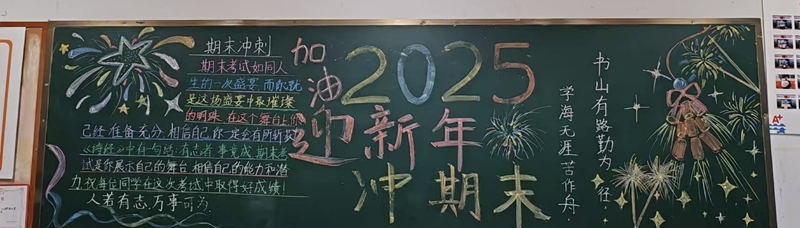 期末冲刺
期末考试如同人
生的一次盛宴 而你就
是这场盛宴中最璀璨
的明珠 在这个舞台上你
已经准备充分 相信自己你一定会有所斩获
《诗经》中有一句 有志者 事竟成 期末考
试是你展示自己的舞台 相信自己的能力和潜
力 祝每位同学在这次考试中取得好成绩!
人若有志,万事可为.
加油
2025
迎新年
冲期末
书山有路勤为 任
学海无涯苦作舟.
A+